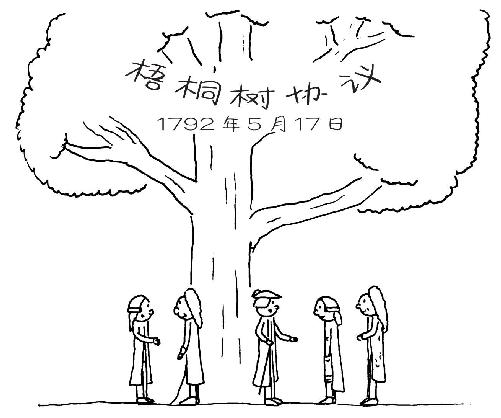 梧桐树协议
1792年5月17日